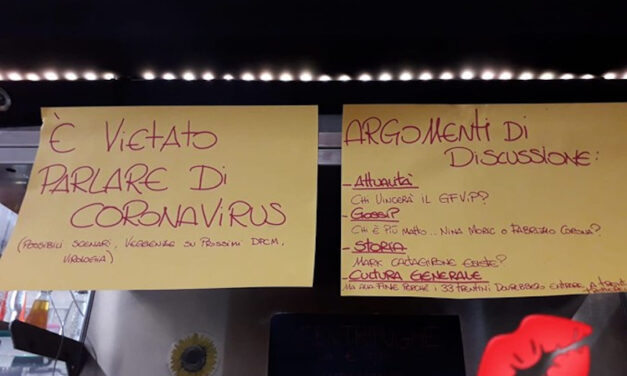 È VIETATO
PARLARE DI
CORONAVIRUS
(POSSIBILI SCENARI, VEGGENZE SU PROSSIMI DPCM,
VIROLOGIA)
ARGOMENTI DI
DISCUSSIONE:
- ATTUALITÀ
CHI VINCERÀ IL GFVIP?
- GOSSIP
CHI È PIÙ MATTO... NINA MORIC O FABRIZIO CORONA?
- STORIA
MARK CALTAGIRONE ESISTE?
- CULTURA GENERALE
MA ALLA FINE PERCHÉ I 33 TRENTINI DOVREBBERO ENTRARE A TRENTO